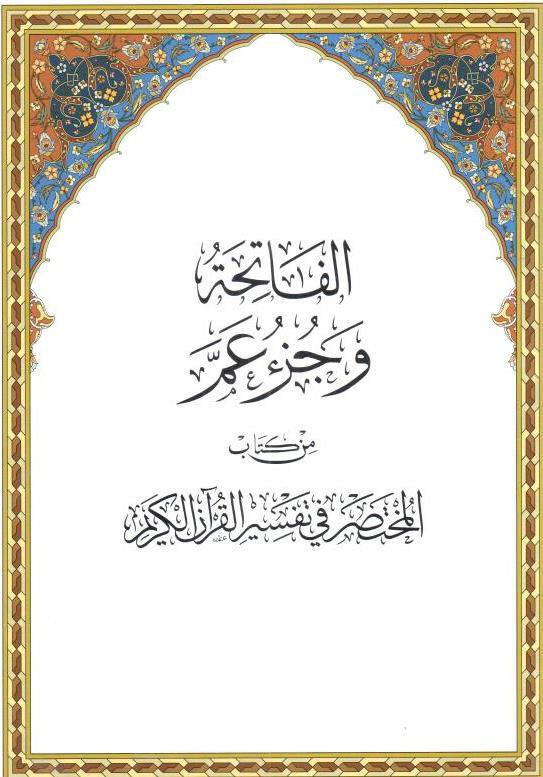 الفَاتِحَةُ
وَجُزْءُ عَمَّ
مِنْ كِتَابِ
المُخْتَصَرُ فِي تَفْسِيرِ القُرْآنِ الكَرِيمِ